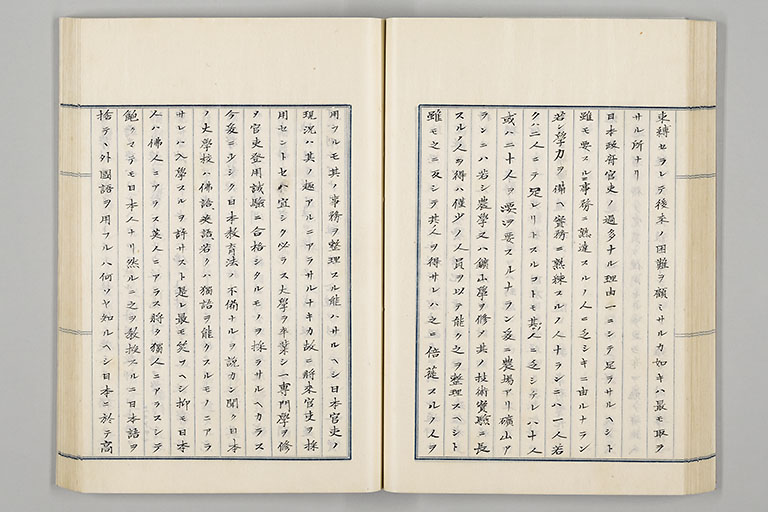 束縛セラレテ後来ノ困難ヲ顧ミサルカ如キハ最モ取ラ
サル所ナリ
日本政府官吏ノ過多ナル理由一ニシテ足ラサルヘシト
雖モ要スルニ事務ニ熟達スルノ人ニ乏シキニ由ルナラン
若シ學力ヲ備ヘ實務ニ熟練スルノ人ナランニハ一人若
クハ二人ニテ足レリトスルコトモ其人ニ乏シケレハ十人
或ハ二十人ヲ要スルナラン爰ニ農場アリ礦山ア
ランニハ若シ農學又ハ鑛山學ヲ修メ其ノ技術實驗ニ長
スルノ人ヲ得ハ僅少ノ人員ヲ以テ能ク之ヲ整理スヘシト
雖モ之ニ反シテ其人ヲ得サレハ之ニ倍蓰スルノ人ヲ
用フルモ其ノ事務ヲ整理スル能ハサルヘシ日本官吏ノ
現況ハ其ノ趣アルニアラサルナキカ故ニ將来官吏ヲ採
用セントセハ宜シク必ラス大學ヲ卒業シ一專門學ヲ修
ヲ官吏登用試驗ニ合格シタルモノヲ採ラサルヘカラス
今爰ニ少シク日本教育法ノ不備ナルヲ説カン聞ク日本
ノ大學校ハ佛語英語若クハ獨語ヲ能クスルモノニアラ
サレハ入學スルヲ許サスト是レ最モ笑フヘシ抑モ日本
人ハ佛人ニアラス英人ニアラス將タ獨人ニアラスシテ
飽クマテモ日本人ナリ然ルニ之ヲ教授スルニ日本語ヲ
捨テヽ外國語ヲ用フルハ何ソヤ知ルヘシ日本ニ於テ高